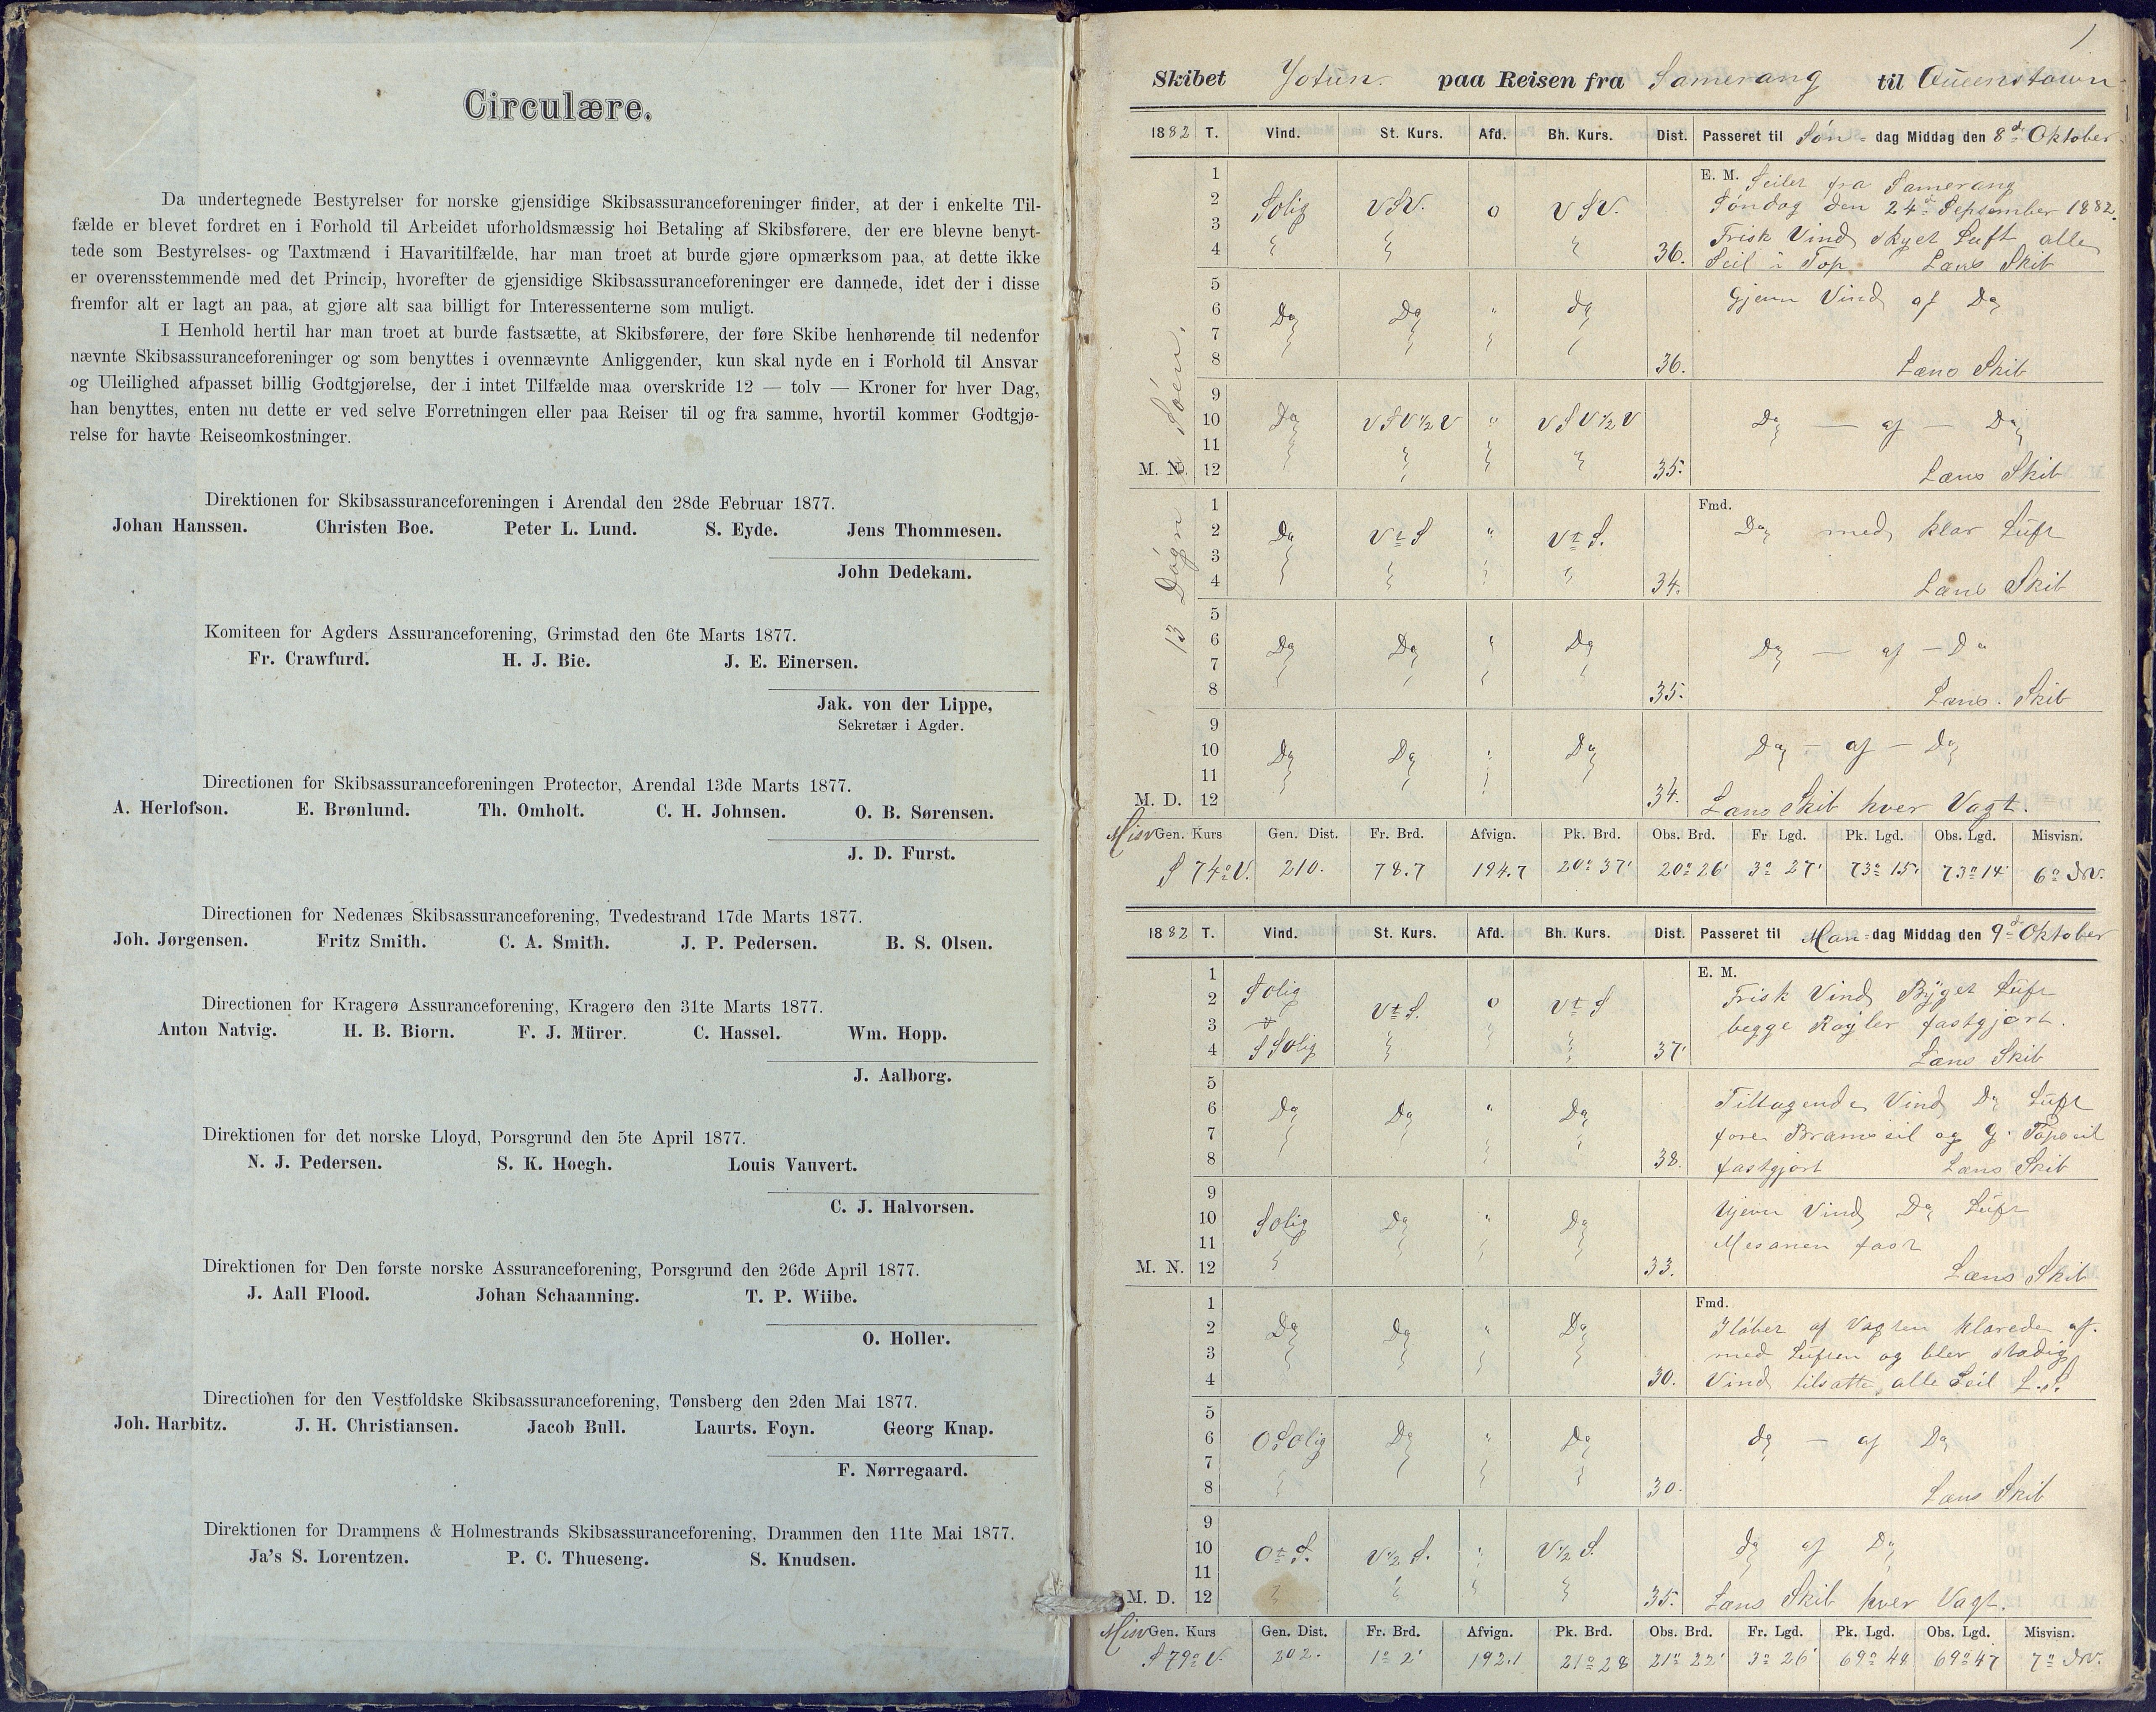 Circulære.
Da undertegnede Bestyrelser for norske gjensidige Skibsassuranceforeninger finder, at der i enkelte Til-
fælde er blevet fordret en i Forhold til Arbeidet uforholdsmæssig høi Betaling af Skibsførere, der ere blevne benyt-
tede som Bestyrelses- og Taxtmænd i Havaritilfælde, har man troet at burde gjøre opmærksom paa, at dette ikke
er overensstemmende med det Princip, hvorefter de gjensidige Skibsassuranceforeninger ere dannede, idet der i disse
fremfor alt er lagt an paa, at gjøre alt saa billigt for Interessenterne som muligt.
I Henhold hertil har man troet at burde fastsætte, at Skibsførere, der føre Skibe henhørende til nedenfor
nævnte Skibsassuranceforeninger og som benyttes i ovennævnte Anliggender, kun skal nyde en i Forhold til Ansvar
og Uleilighed afpasset billig Godtgjørelse, der i intet Tilfælde maa overskride 12 — tolv — Kroner for hver Dag,
han benyttes, enten nu dette er ved selve Forretningen eller paa Reiser til og fra samme, hvortil kommer Godtgjø-
relse for havte Reiseomkostninger.
Direktionen for Skibsassuranceforeningen i Arendal den 28de Februar 1877.
Johan Hanssen. Christen Boe. Peter L. Lund. S. Eyde. Jens Thommesen.
John Dedekam.
Komiteen for Agders Assuranceforening, Grimstad den 6te Marts 1877.
Fr. Crawfurd. H. J. Bie. J. E. Einersen.
Jak. von der Lippe,
Sekretær i Agder.
Directionen for Skibsassuranceforeningen Protector, Arendal 13de Marts 1877.
A. Herlofson. E. Brønlund. Th. Omholt. C. H. Johnsen. O. B. Sørensen.
J. D. Furst.
Directionen for Nedenæs Skibsassuranceforening, Tvedestrand 17de Marts 1877.
Joh. Jørgensen. Fritz Smith. C. A. Smith. J. P. Pedersen. B. S. Olsen.
Directionen for Kragerø Assuranceforening, Kragerø den 31te Marts 1877.
Anton Natvig. H. B. Biørn. F. J. Mürer. C. Hassel. Wm. Hopp.
J. Aalborg.
Direktionen for det norske Lloyd, Porsgrund den 5te April 1877.
N. J. Pedersen. S. K. Hoegh. Louis Vauvert.
C. J. Halvorsen.
Direktionen for Den første norske Assuranceforening, Porsgrund den 26de April 1877.
J. Aall Flood. Johan Schaanning. T. P. Wiibe.
O. Holler.
Directionen for den Vestfoldske Skibsassuranceforening, Tønsberg den 2den Mai 1877.
Joh. Harbitz. J. H. Christiansen. Jacob Bull. Laurts. Foyn. Georg Knap.
F. Nørregaard.
Direktionen for Drammens & Holmestrands Skibsassuranceforening, Drammen den 11te Mai 1877.
Ja's S. Lorentzen. P. C. Thueseng. S. Knudsen.
1
Skibet Jotun. paa Reisen fra Samerang til Queenstown
1882 T. Vind. St. Kurs. Afd. Bh. Kurs. Dist. Passeret til Søn- dag Middag den 8de Oktober
1 E. M. Seilet fra Samerang
2 Solig VSV. 0 VSV. Søndag den 24de September 1882.
3 Frisk Vind skyet Luft alle
4 36. Seil i Top Læns Skib
5 Gjevn Vind af Do
6 Do Do " do
7
8 36. Læns Skib
9
10 Do VSV 1/2 V " VSV 1/2 V Do — af — Do
11
M. N. 12 35. Læns Skib
13 Døgn i Søen.
1 Fmd.
2 Do Vt S " Vt S. Do med klar Luft
3
4 34. Læns Skib
5
6 Do Do " Do Do — af — Do
7
8 35. Læns. Skib
9
10 Do Do " Do Do — af — Do
11
M. D. 12 34. Læns Skib hver Vagt.
Misv Gen. Kurs Gen. Dist. Fr. Brd. Afvign. Pk. Brd. Obs. Brd. Fr Lgd. Pk. Lgd. Obs. Lgd. Misvisn.
S 74° V. 210. 78.7 194.7 20° 37' 20° 26' 3° 27' 73° 15' 73° 14' 6° NV.
1882 T. Vind. St. Kurs. Afd. Bh. Kurs. Dist. Passeret til Man-dag Middag den 9de Oktober
1 E. M.
2 Solig Vt S. 0 Vt S Frisk Vind Byget Luft
3 begge Røyler fastgjort.
4 SSolig 37. Læns Skib
5
6 Do Do " Do Tiltagende Vind Do Luft
7 fore Bramseil og G. Topseil
8 38. fastgjort Læns Skib
9
10 Solig Do " Do Ujevn Vind Do Luft
11 Mesanen fast
M. N. 12 33. Læns Skib
1 Fmd.
2 Do Do " Do I løbet af Vagten klarede af.
3 med Luften og blev stadig
4 30. Vind tilsatte alle Seil L.S.
5
6 OSolig Do " Do do — af Do
7
8 30. Læns Skib
9
10 Ot S. V 1/2 S. " V 1/2 S. do af Do
11
M. D. 12 35. Læns Skib hver Vagt.
Misv Gen. Kurs Gen. Dist. Fr. Brd. Afvign. Pk. Brd. Obs. Brd. Fr. Lgd. Pk. Lgd. Obs. Lgd. Misvisn.
S 79° V. 202. 1° 2' 192.1 21° 28 21° 22' 3° 26' 69° 48 69° 47 7° NV.